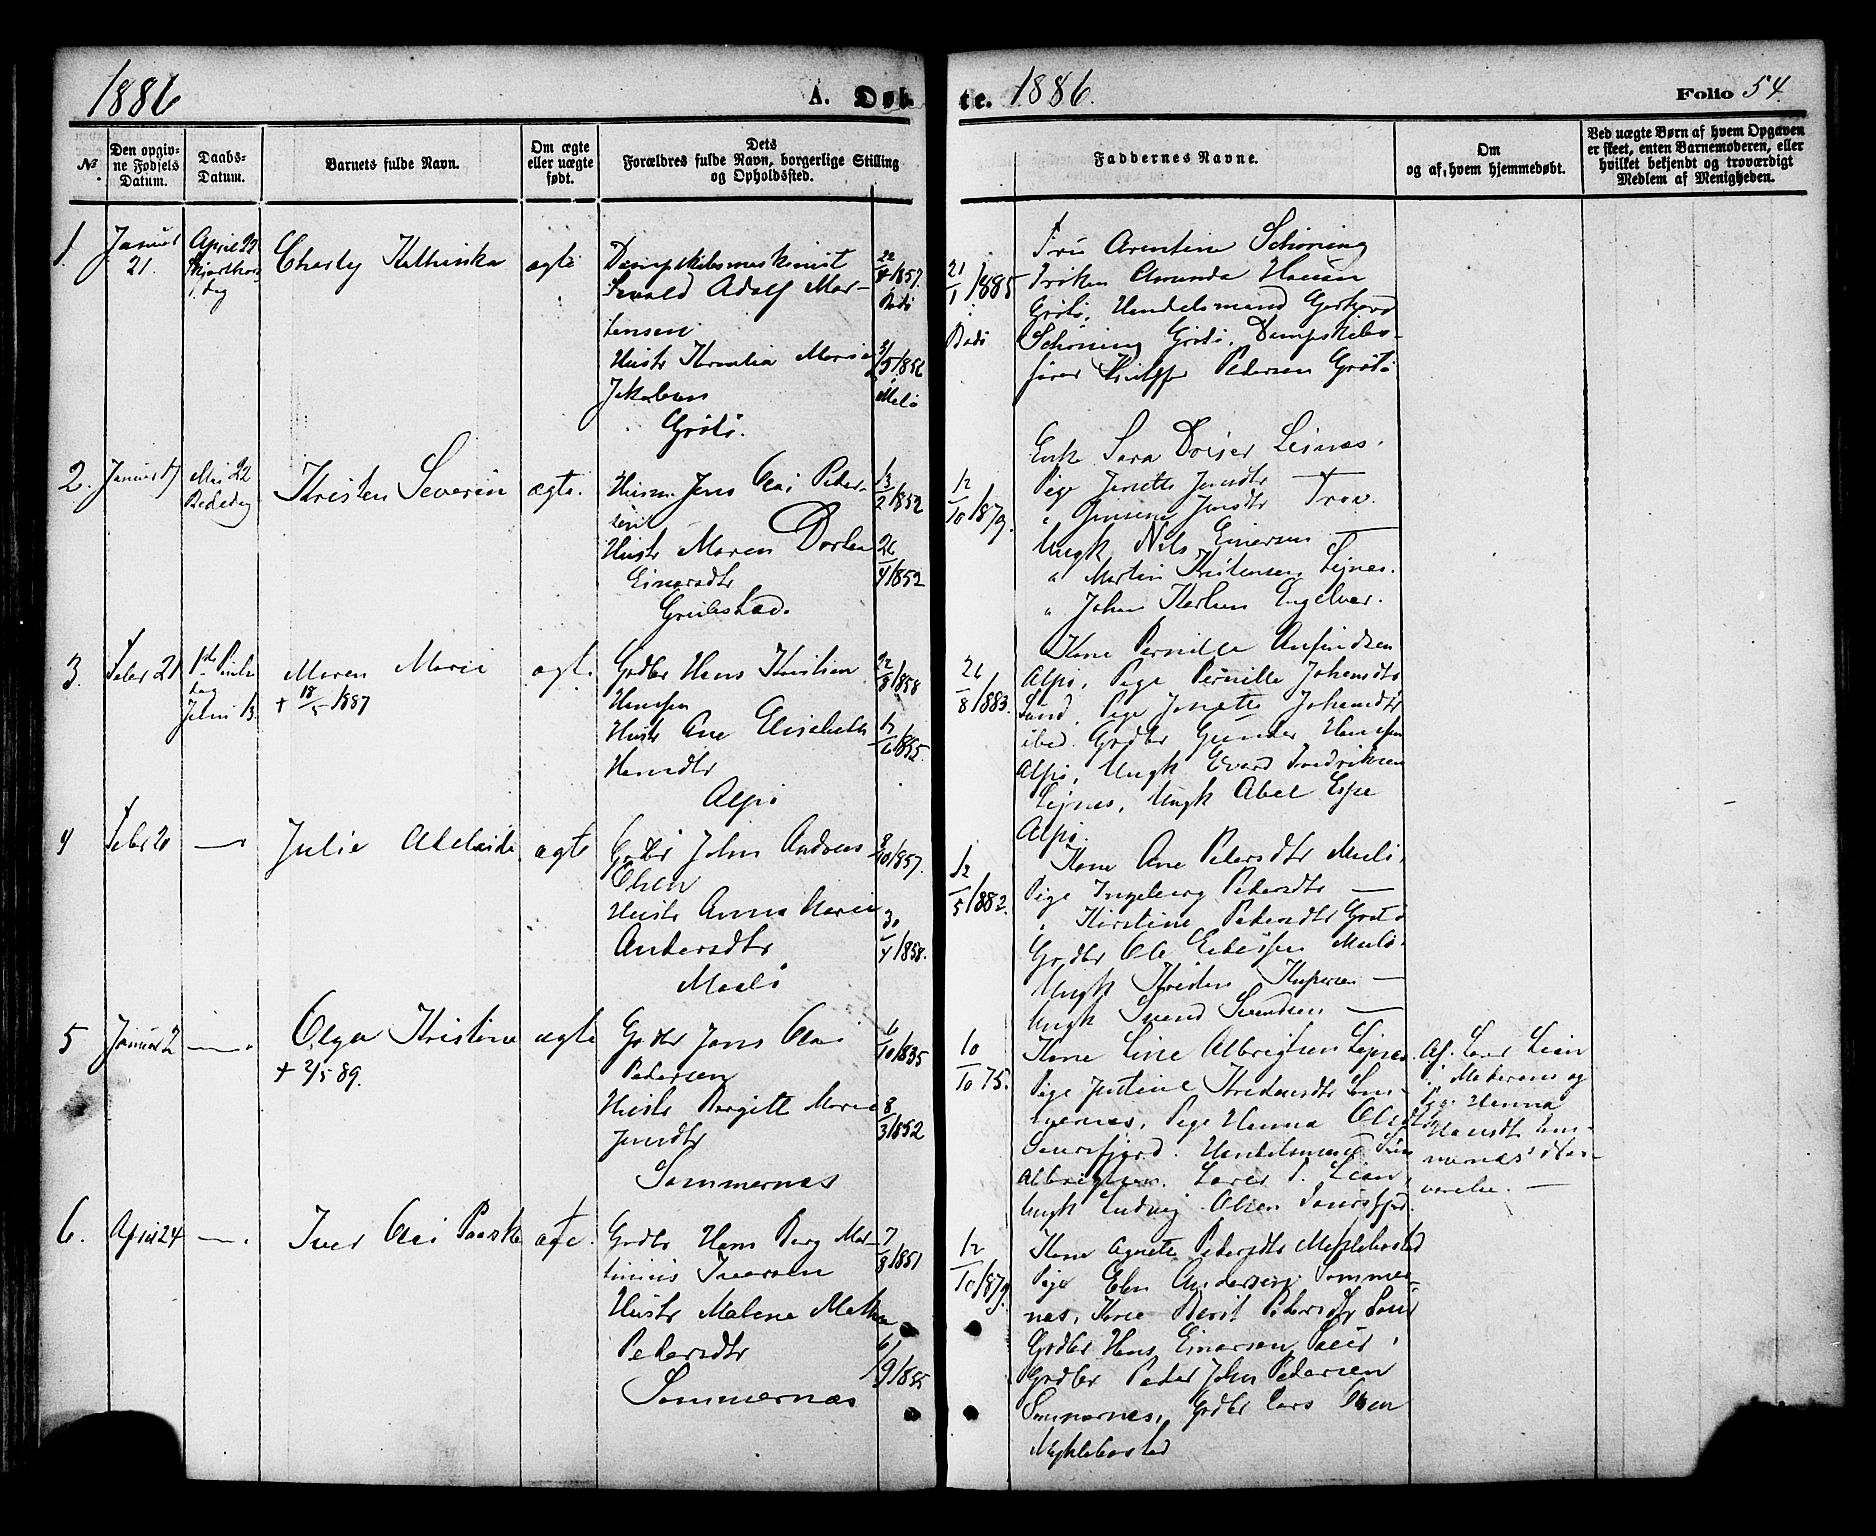 1886
A. Døb-
te. 1886.
Folio 54.
№
Den opgiv-
ne Fødsels
Datum.
Daabs-
Datum.
Barnets fulde Navn.
Om ægte
eller uægte
født.
Dets
Forældres fulde Navn, borgerlige Stilling
og Opholdssted.
Faddernes Navne.
Om
og af hvem hjemmedøbt.
Ved uægte Børn af hvem Opgaven
er skeet, enten Barnemoderen, eller
hvilket bekjendt og troværdigt
Medlem af Menigheden.
1.
Januar
21.
April 22
Skjærthors
dag
Charly Kathinka
ægte
Dampskibsmaskinist
Adolf Mar-
tensen
Hustr Kornelia Maria
Jakobsen
Grøtø.
22/4 1857.
Bodø
3/5 1856
Melø
21/1 1885
Bodø
Fru Arentine Schøning
Frøken Amanda Hansen
Grøtø, Handelsmand Gerhard
Schøning Grøtø, Dampskibs-
fører Pedersen Grøtø
2.
Januar 17
Mai 22
Bededag
Kristen Severin
ægte.
Husm. Jens Olai Peder-
sen
Hustr Maren Dortea
Einarsdtr
Grunstad.
13/2 1852
26/4 1852
12/10 1879.
Enk. Sara Leines.
Pige Jonette Jensdtr —
" Jensine Jensdtr
Ungk. Nils Einarsen —
" Martin Kristensen Leines.
" Johan Karlsen Engelvær.
3.
Febr 21
1ste Pintse
dag
Juni 13.
Maren Marie
+ 18/5 1887
ægte.
Grdbr Hans Kristian
Hansen
Hustr Ane Elisabeth
Hansdtr
Alpø
22/8 1858
26/8 1883.
Kone Pernille Anfindsen
Alpø, Pige Pernille Johansdtr
Sund, Pige Jonette Johansdtr
ibid. Grdbr Gunder Hansen
Alpø, Ungk Edvard Fredriksen
Leines, Ungk Abel Espe
Alpø.
4
Febr 20
—
Julie Adelaide
ægte
Grdbr John Andreas
Olsen
Hustr Anna Maria
Andersdtr
Maalø
8/10 1857.
30/4 1858.
12/5 1882.
Kone Ane Pedersdtr Maalø.
Pige Ingeborg Pedersdtr —
" Kirstine Pedersdtr Grøtø
Grdbr Ole
Ungk Kristen Kaspersen —
Ungk Svend Svendsen —
5
Januar 2
—
Olga Kristine
+ 2/5 89.
ægte
Grdbr Jens Olai
Pedersen
Hustr Bergitte Marie
Jensdtr
Sommernæs
6/10 1835
8/3 1852
10/10 75.
Kone Line Albrigtsen Leines.
Pige Justine
Pige Hanna
Handelsmand
Albrigtsen. Lærer Lien,
Ungk Ludvig Olsen
Af Lærer Lien
i Moderens og
Pige Hanna
værelse. —
6.
April 24
—
Iver Olai Paaske
ægte.
Grdbr Hans Berg Mar-
tinius Iversen
Hustr Malene Mathea
Pedersdtr
Sommernæs
7/8 1851
6/9 1855
12/10 1879.
Kone Agnete Pedersdtr Myklebostad
Pige Elen Andersen Sommer-
næs, Kone Berit Pedersdtr
Grdbr Hans Einarsen
Grdbr Peder John Pedersen
Sommernæs, Grdbr Lars
Myklebostad